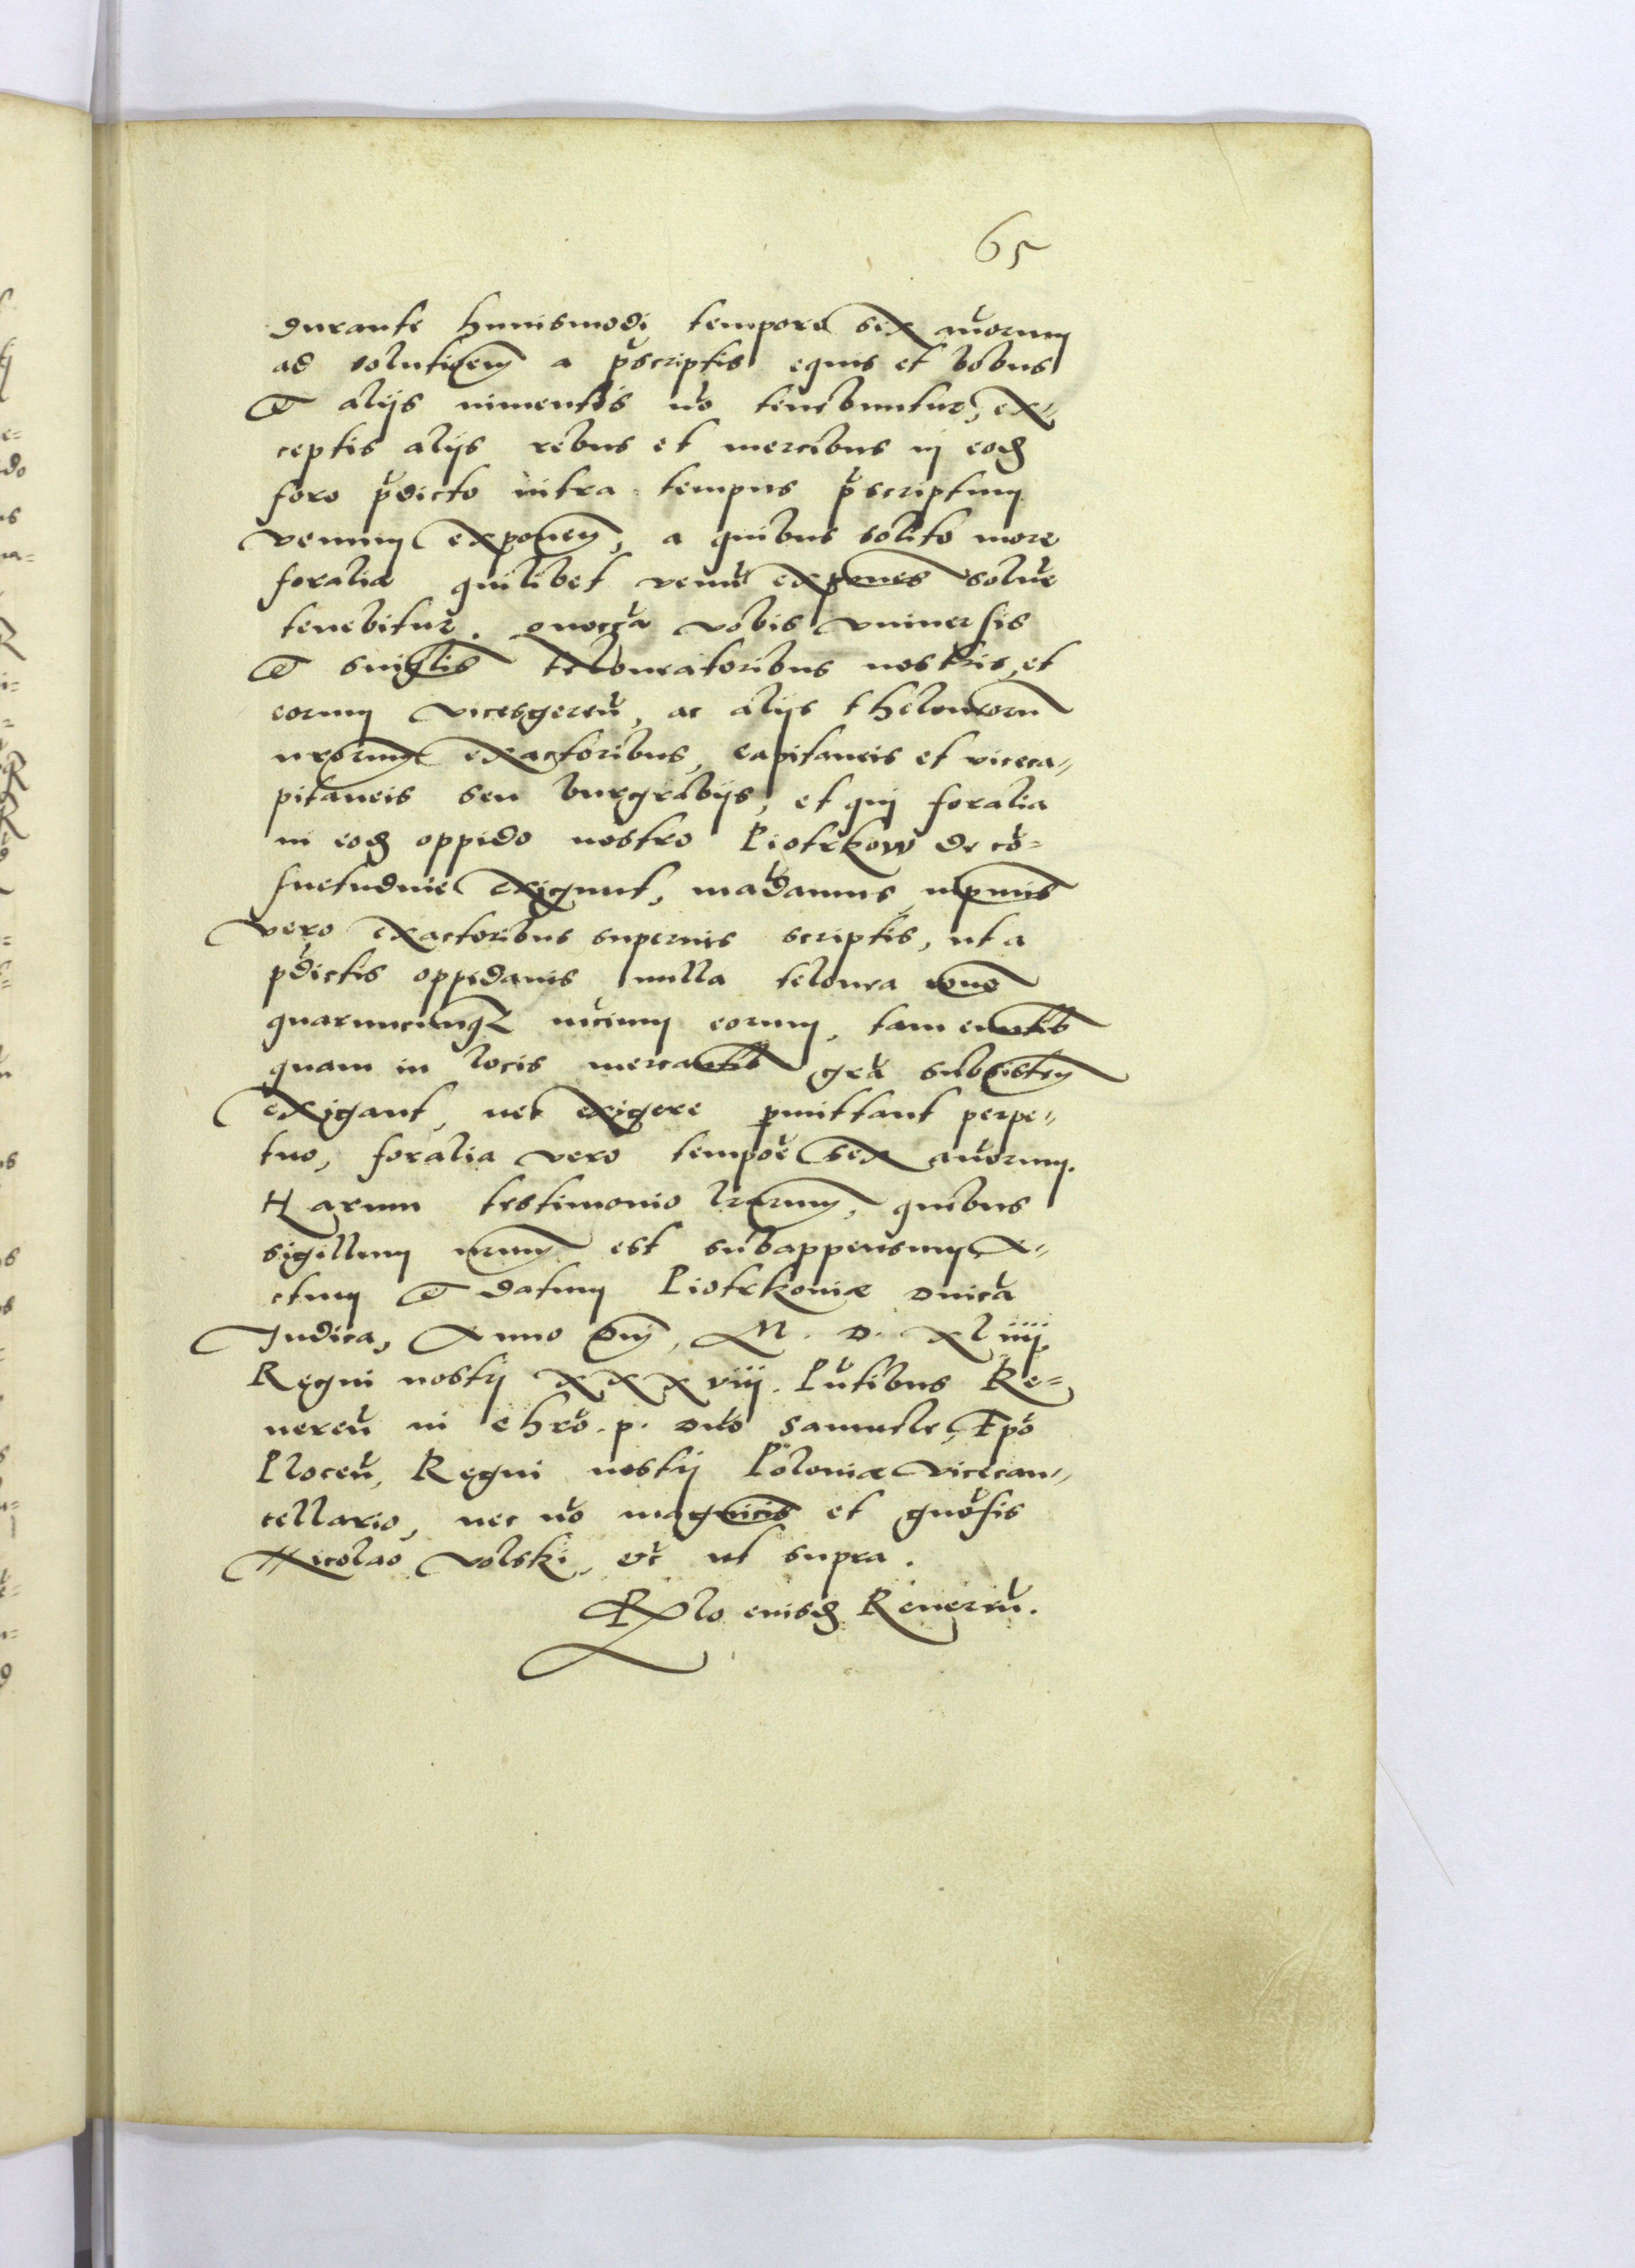 65
durante huiusmodi tempore sex an̄orum
ad solutiōem a p̄scriptis equis et bobus
et alijs iumentis nō tenebuntur, ex=
ceptis alijs rebus et mercibus in eodē
foro p̄dicto intra tempus p̄scriptum
venum exponen̄, a quibus solito more
foralia quilibet venū expones solūe
tenebitur. Quocc̄a vobis vniuersis
et singlīs teloneatoribus nostris, et
eorum vicesgeren̄, ac alijs theloneorū
nr̄orum exactoribus, capitaneis et viceca=
pitaneis seu burgrabijs, et qui foralia
in eodē oppido nostro Piotrkow de cō=
suetudine exigunt, mādamus, inpr̄mis
vero exactoribus supernis scriptis, ut a
p̄dictis oppidanis nulla telonea rōne
quarumcumq̄ mērcium eorum, tam eun̄tib
quam in locis mercan̄tib grā subsisten̄
exigant, nec exigere p̱mittant perpe=
tuo, foralia vero tempōe sex an̄orum.
Harum testimonio lr̄arum, quibus
sigillum nr̄um est subappensum, A=
ctum et datum Piotrkouiæ Dn̄ica
Judica, Anno Dn̄i, M. D. XLiiij
Regni nostrj XXXviij. Pn̄tibus Re=
ueren̄ in chrō. p. Dn̄o Samuele, Epō
Plocen̄, Regni nostrj Poloniæ vicecan=
cellario, nec nō magnīcis et gn̄osis
Nicolao Volski, etc̄ ut supra.
Rlo eiusdē Reueren̄.